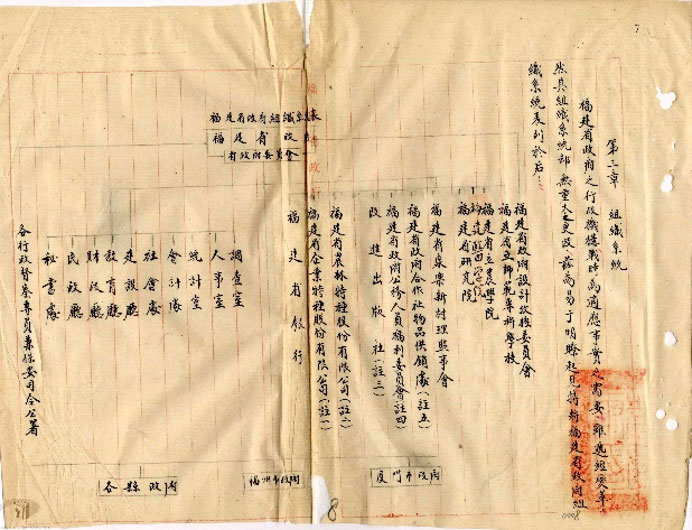 第三章 組織系統
福建省政府之行政機構戰時為適應事實之需要雖迭經變革
然其組織系統部無重大之更改茲為易于明瞭起見特將福建省政府組
織系統表列於后：
福建省政府組織系統表
福建省政府
省政府委員會
福建省政府設計考核委員會
福建省立師範專科學校
福建省立農學院
福建省研究院
福建省泉樂新村理監事會
福建省政府合作社物品供銷處（註五）
福建省政府公務人員福利委員會（註四）
改進出版社（註三）
福建省農林特種股份有限公司（註二）
福建省企業特種股份有限公司（註一）
福建省銀行
調查室
人事室
統計室
會計處
社會處
建設廳
教育廳
財政廳
民政廳
秘書處
各行政督察專員兼保安司令公署
廈門市政府
福州市政府
各縣政府
8
7